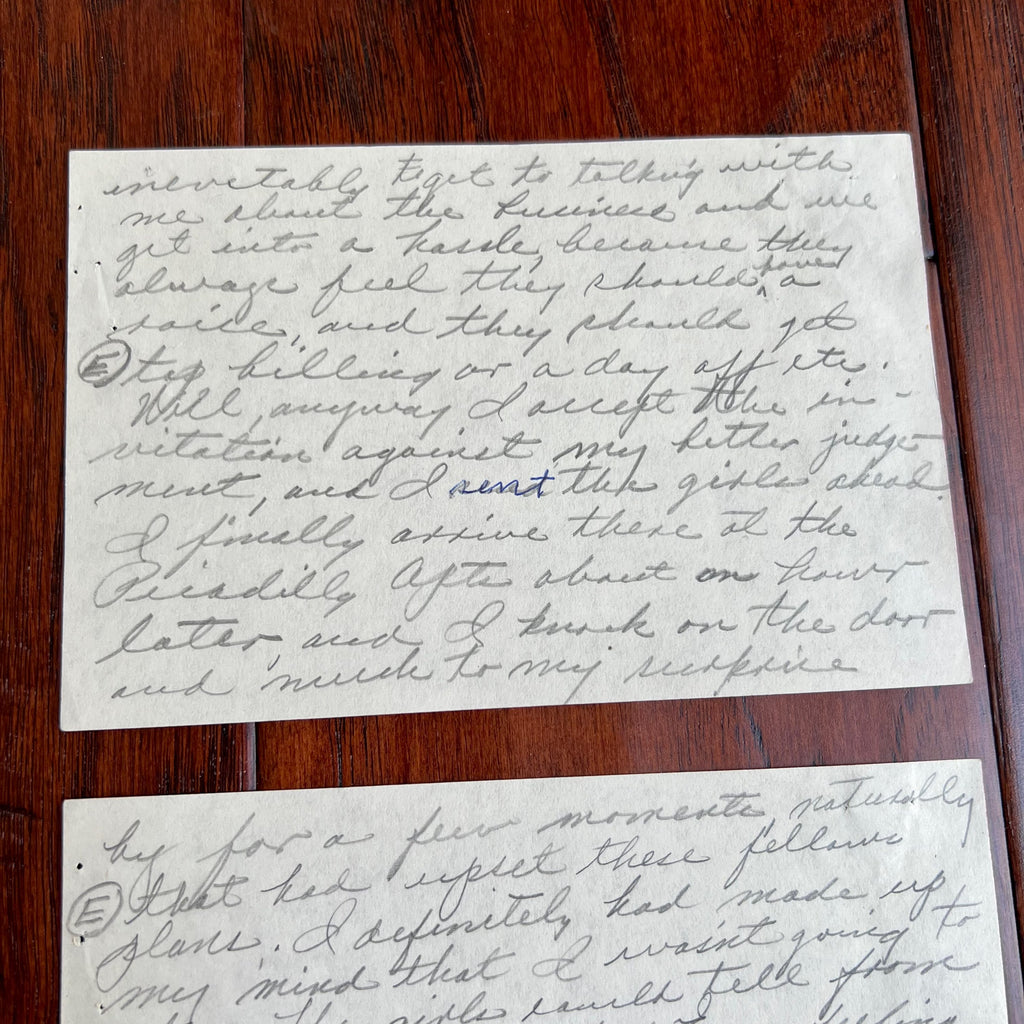 inevetably to get to talking with
me about the business and we
get into a hassle, because they
always feel they should have a
raise, and they should get
Ⓔ top billing or a day off etc.
Well, anyway I accept the in-
vitation against my better judge-
ment, and I sent the girls ahead.
I finally arrive there at the
Picadilly Apts about an hour
later, and I knock on the door
and much to my surprise
by for a few moments, naturally
Ⓔ that had upset these fellows
plans. I definitely had made up
my mind that I wasn't going to
the girls could tell from